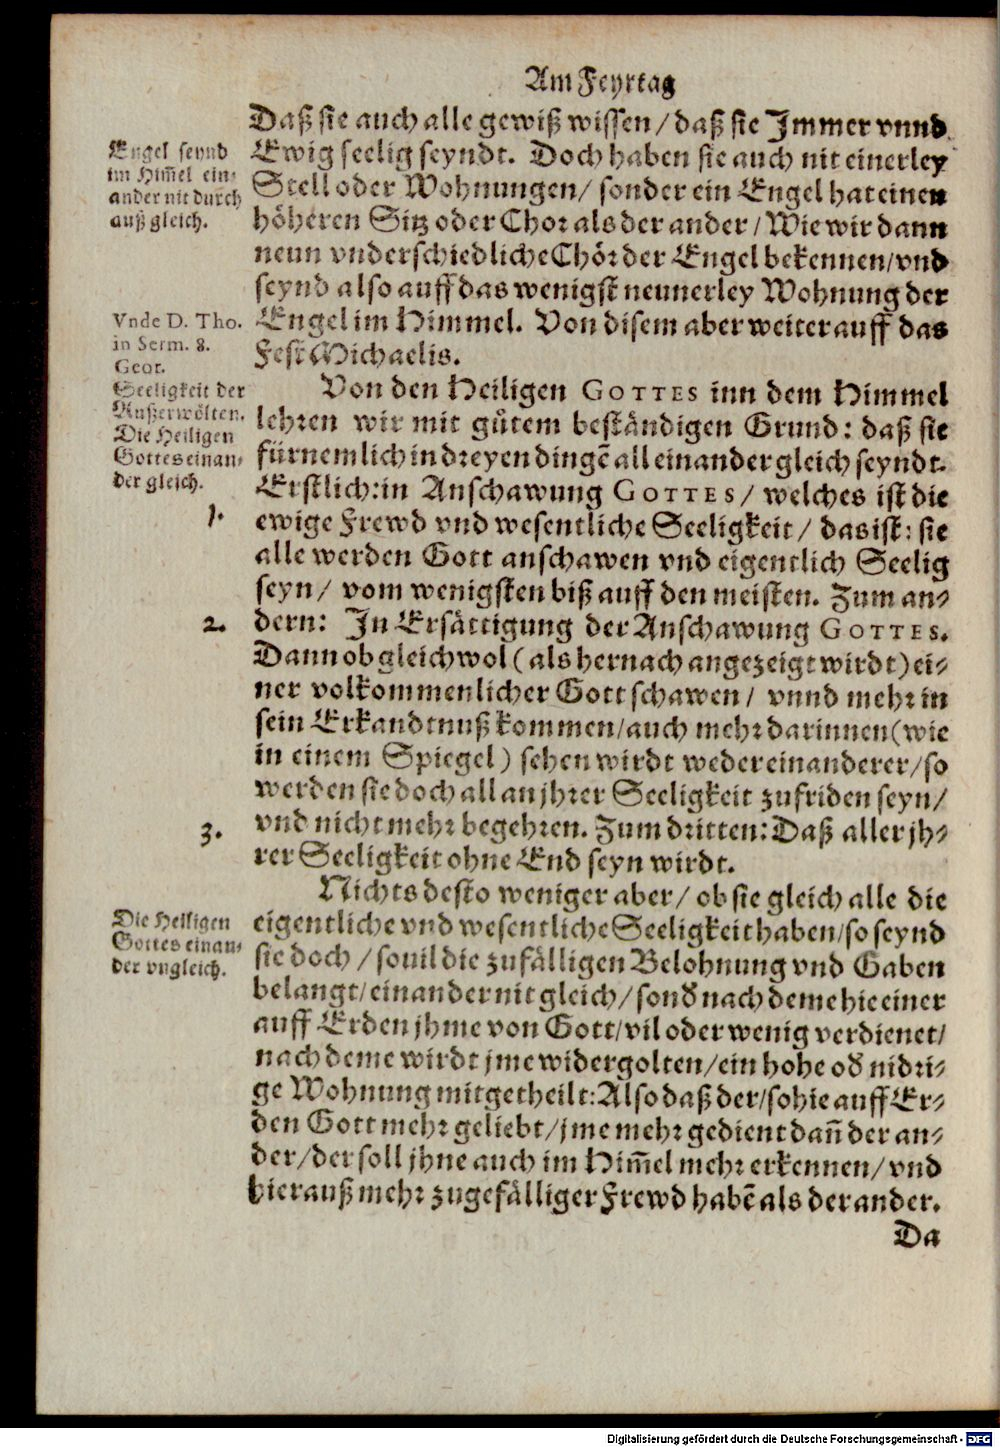 Am Feyrtag
Daß sie auch alle gewiß wissen / daß sie Jmmer vnnd
Ewig seelig seyndt. Doch haben sie auch nit einerley
Stell oder Wohnungen / sonder ein Engel hat einen
höheren Sitz oder Chor als der ander / Wie wir dann
neun vnderschiedliche Chör der Engel bekennen / vnd
seynd also auff das wenigst neunerley Wohnung der
Engel im Himmel. Von disem aber weiter auff das
Fest Michaelis.
Engel seynd
im Him̄el ein-
ander nit durch
auß gleich.
Von den Heiligen GOTTES inn dem Himmel
lehren wir mit gůtem beständigen Grund: daß sie
fürnemlich in dreyen dingē all einander gleich seyndt.
Erstlich: in Anschawung GOTTES / welches ist die
ewige Frewd vnd wesentliche Seeligkeit / das ist: sie
alle werden Gott anschawen vnd eigentlich Seelig
seyn / vom wenigsten biß auff den meisten. Zum an-
dern: Jn Ersättigung der Anschawung GOTTES.
Dann ob gleichwol (als hernach angezeigt wirdt) ei-
ner volkommenlicher Gott schawen / vnnd mehr in
sein Erkandtnuß kommen / auch mehr darinnen (wie
in einem Spiegel) sehen wirdt weder ein anderer / so
werden sie doch all an jhrer Seeligkeit zufriden seyn /
vnd nicht mehr begehren. Zum dritten: Daß aller jh-
rer Seeligkeit ohne End seyn wirdt.
Vnde D. Tho.
in Serm. 8.
Geor.
Seeligkeit der
Außerwölten.
Die Heiligen
Gottes einan-
der gleich.
1.
2.
3.
Nichts desto weniger aber / ob sie gleich alle die
eigentliche vnd wesentliche Seeligkeit haben / so seynd
sie doch / souil die zufälligen Belohnung vnd Gaben
belangt / einander nit gleich / sonď nach deme hie einer
auff Erden jhme von Gott / vil oder wenig verdienet /
nach deme wirdt jme widergolten / ein hohe oď nidri-
ge Wohnung mitgetheilt: Also daß der / so hie auff Er-
den Gott mehr geliebt / jme mehr gedient dañ der an-
der / der soll jhne auch im Him̄el mehr erkennen / vnd
hierauß mehr zugefälliger Frewd habē als der ander.
Die Heiligen
Gottes einan-
der vngleich.
Da
Digitalisierung gefördert durch die Deutsche Forschungsgemeinschaft - DFG